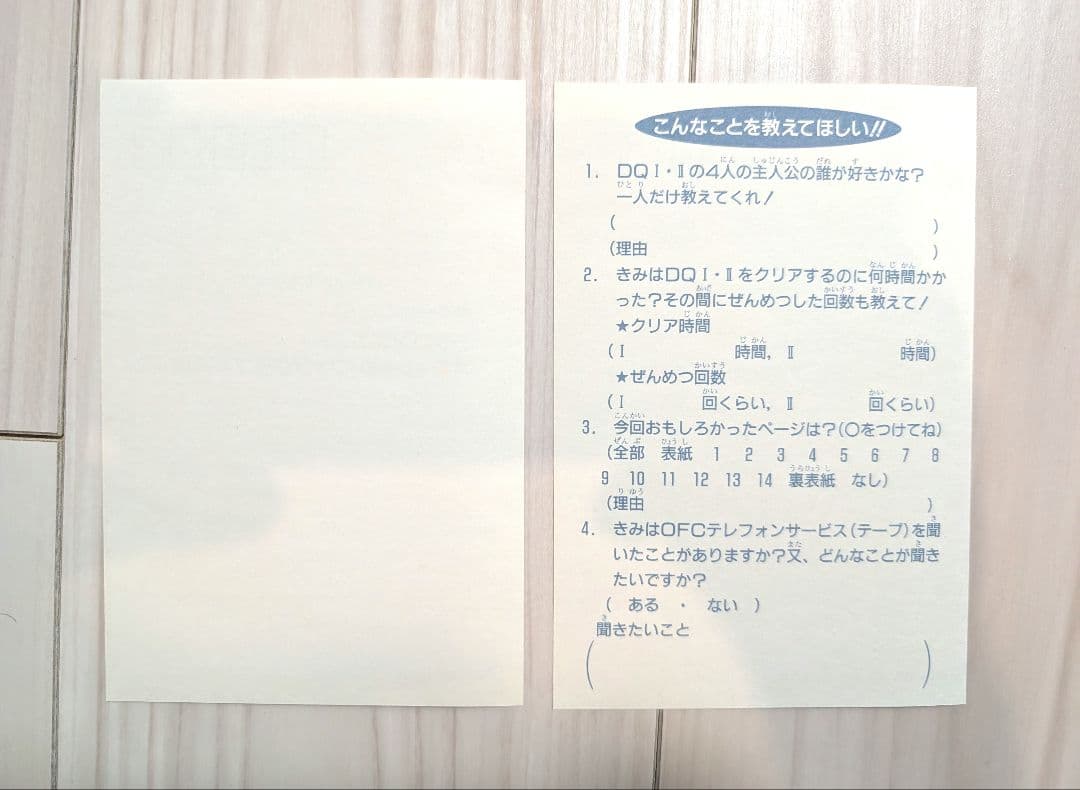 こんなことを教えてほしい!!
1. DQⅠ・Ⅱの4人の主人公の誰が好きかな?
一人だけ教えてくれ!
( )
(理由 )
2. きみはDQⅠ・Ⅱをクリアするのに何時間かか
った?その間にぜんめつした回数も教えて!
★クリア時間
(Ⅰ 時間, Ⅱ 時間)
★ぜんめつ回数
(Ⅰ 回くらい, Ⅱ 回くらい)
3. 今回おもしろかったページは?(○をつけてね)
(全部 表紙 1 2 3 4 5 6 7 8
9 10 11 12 13 14 裏表紙 なし)
(理由 )
4. きみはOFCテレフォンサービス(テープ)を聞
いたことがありますか?又、どんなことが聞き
たいですか?
( ある ・ ない )
聞きたいこと
( )